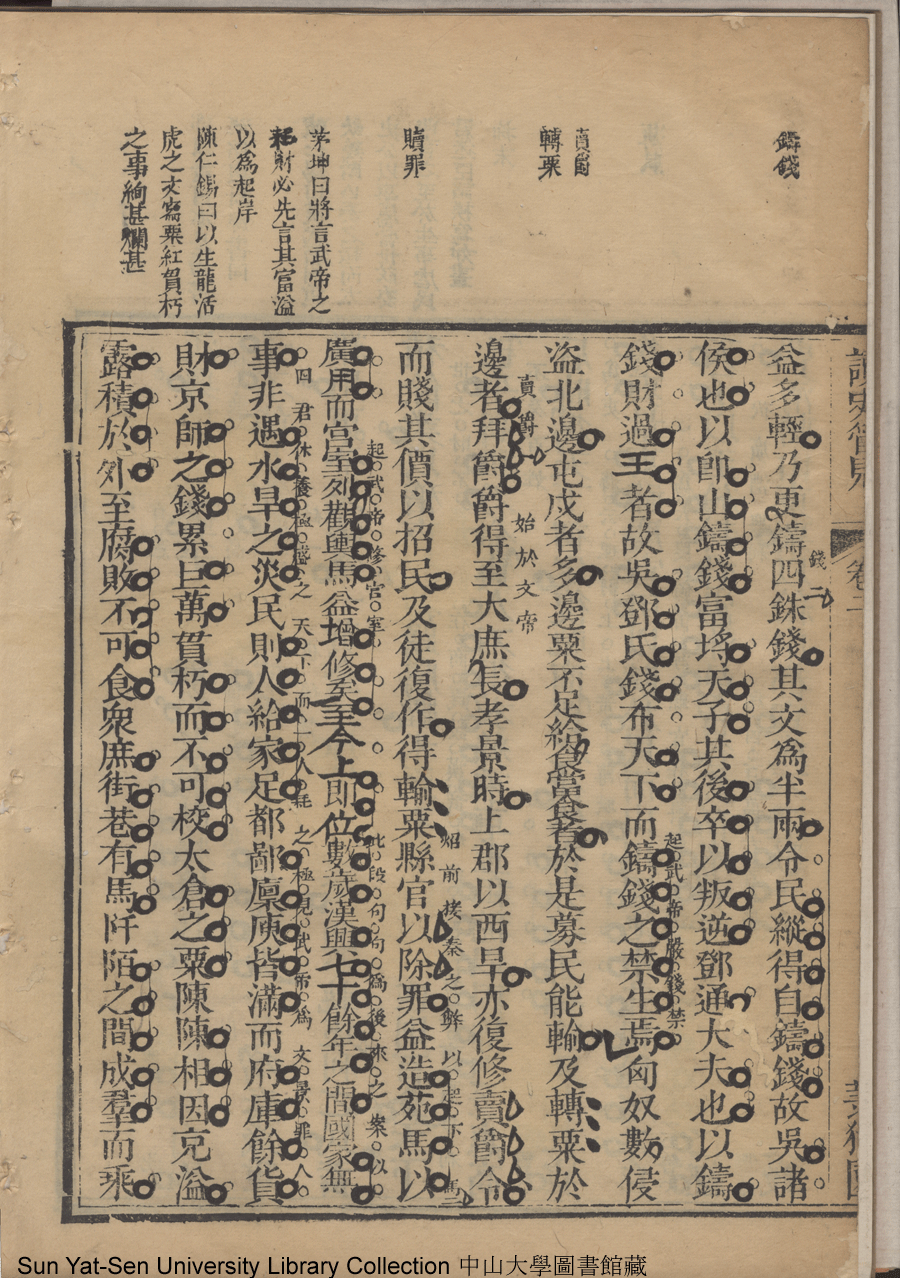 鑄錢
賣爵
轉粟
贖罪
茅坤曰將言武帝之
耗財必先言其富溢
以爲起岸
陳仁錫曰以生龍活
虎之文寫粟紅貫朽
之事絢甚爛甚
卷二
益多輕乃更鑄四銖錢其文爲半兩令民縱得自鑄錢故吳諸
錢二
侯也以卽山鑄錢富埓天子其後卒以叛逆鄧通大夫也以鑄
錢財過王者故吳鄧氏錢布天下而鑄錢之禁生焉匈奴數侵
起武帝嚴錢禁
盜北邊屯戍者多邊粟不足給食當食者於是募民能輸及轉粟於
邊者拜爵爵得至大庶長孝景時上郡以西旱亦復修賣爵令
始於文帝
賣爵一
而賤其價以招民及徒復作得輸粟縣官以除罪益造苑馬以
炤前接秦之弊以起下
馬一
廣用而宮室列觀輿馬益增修矣至今上卽位數歲漢興七十餘年之間國家無
起武帝修宮室
此段句句爲後來之案以
事非遇水旱之災民則人給家足都鄙廩庾皆滿而府庫餘貨
四君休養極盛之天下而一人耗之極見武帝爲文景罪人
財京師之錢累巨萬貫朽而不可校太倉之粟陳陳相因充溢
露積於外至腐敗不可食衆庶街巷有馬阡陌之間成羣而乘
Sun Yat-Sen University Library Collection 中山大學圖書館藏